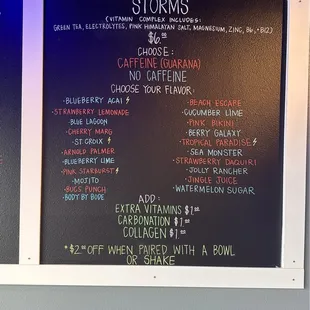 STORMS
(VITAMIN COMPLEX INCLUDES:
GREEN TEA, ELECTROLYTES, PINK HIMALAYAN SALT, MAGNESIUM, ZINC, B6, + B12)
$6.00
CHOOSE:
CAFFEINE (GUARANA)
NO CAFFEINE
CHOOSE YOUR FLAVOR:
•BLUEBERRY ACAI⚡
•STRAWBERRY LEMONADE
•BLUE LAGOON
•CHERRY MARG
•ST. CROIX⚡
•ARNOLD PALMER
•BLUEBERRY LIME
•PINK STARBURST⚡
•MOJITO
•BUGS PUNCH
•BODY BY BODE
•BEACH ESCAPE
•CUCUMBER LIME
•PINK BIKINI
•BERRY GALAXY
•TROPICAL PARADISE⚡
•SEA MONSTER
•STRAWBERRY DAQUIRI
•JOLLY RANCHER
•JINGLE JUICE
•WATERMELON SUGAR
ADD:
EXTRA VITAMINS $1.00
CARBONATION $1.00
COLLAGEN $1.00
*$2.00 OFF WHEN PAIRED WITH A BOWL
OR SHAKE